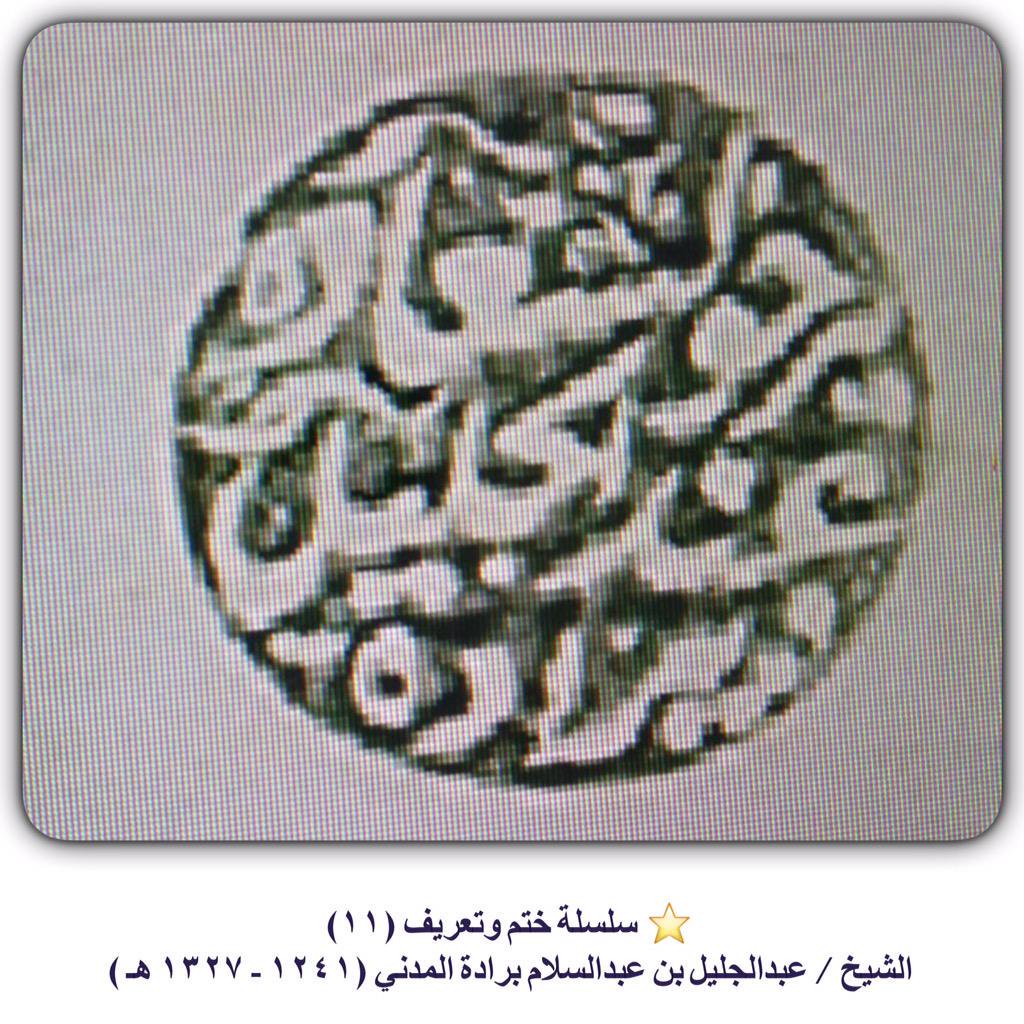 عبد الجليل
برادة
⭐ سلسلة ختم وتعريف (١١)
الشيخ / عبدالجليل بن عبدالسلام برادة المدني (١٢٤١ ـ ١٣٢٧ هـ )